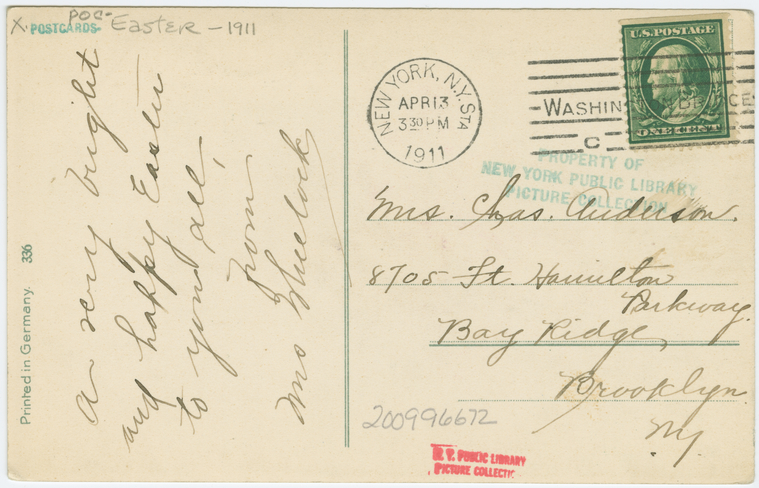 X. POSTCARDS- POC- Easter - 1911
A very bright
and happy Easter
to you all,
from
Mrs
Printed in Germany. 336
NEW YORK, N.Y. STA
APR 13
330 PM
1911
WASHIN
C
U.S. POSTAGE
ONE CENT
PROPERTY OF
NEW YORK PUBLIC LIBRARY
PICTURE COLLECTION
Mrs. Chas. Anderson.
8705 Ft. Hamilton
Parkway.
Bay Ridge,
Brooklyn
N.Y.
200996672
N. Y. PUBLIC LIBRARY
PICTURE COLLECTIO